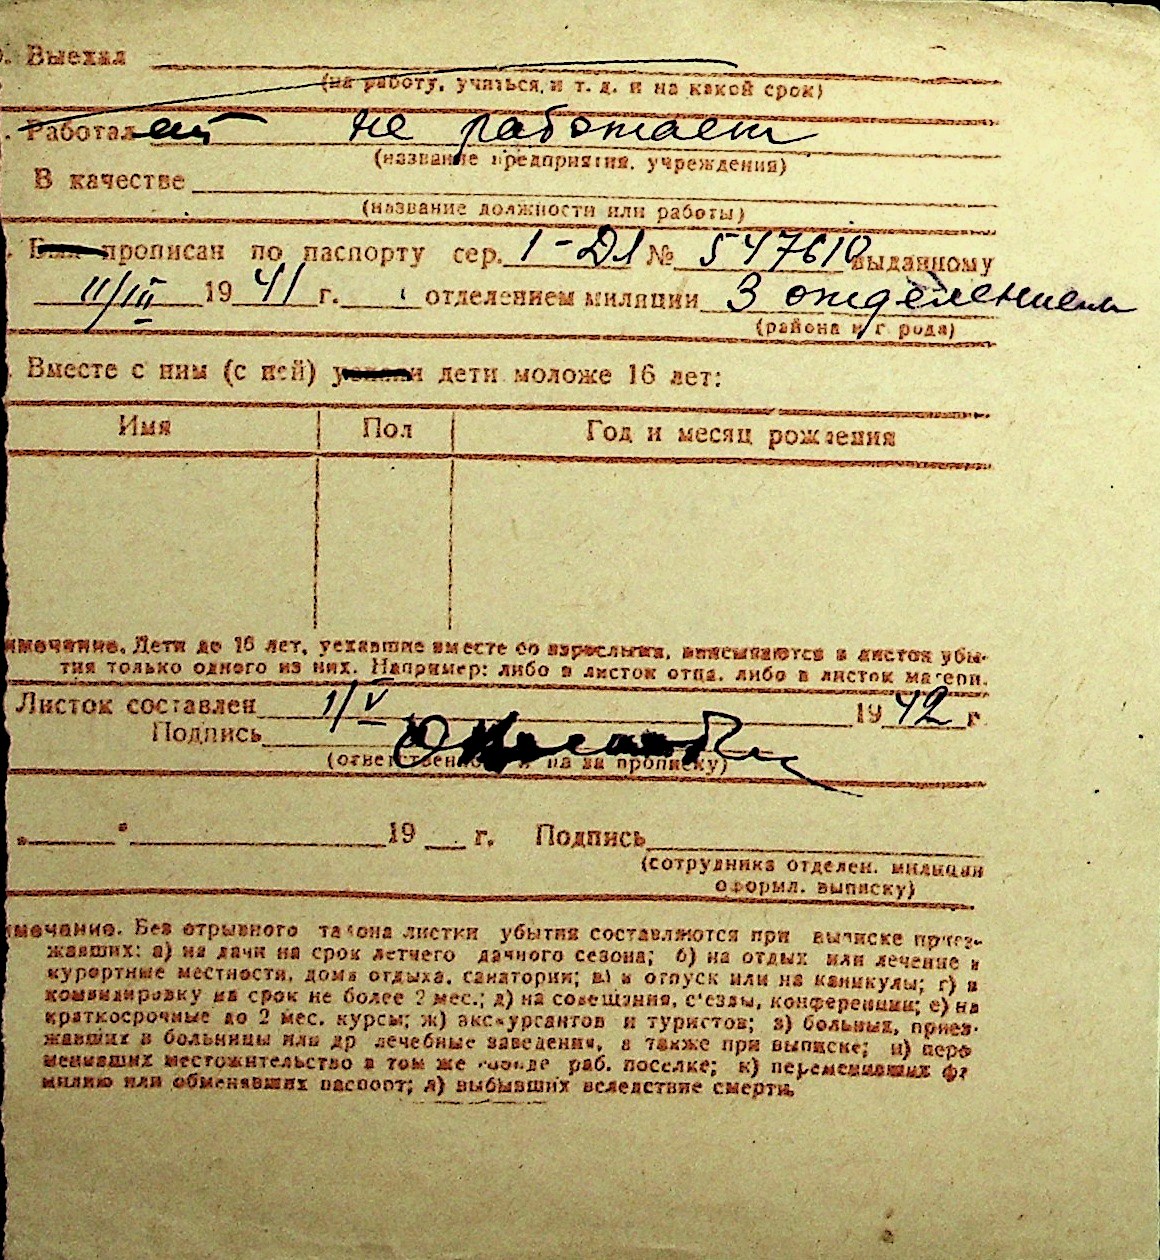 Выехал
(на работу, учиться, и т. д. и на какой срок)
Работал ет не работает
(название предприятия, учреждения)
В качестве
(название должности или работы)
Был прописан по паспорту сер. 1-ДЛ № 547610 выданному
11/III 1941 г. отделением милиции 3 отделением
(района и г рода)
Вместе с ним (с ней) уехали дети моложе 16 лет:
Имя Пол Год и месяц рождения
имечание. Дети до 16 лет, уехавшие вместе со взрослыми, вписываются в листок убы-
тия только одного из них. Например: либо в листок отца, либо в листок матери.
Листок составлен 1/V 1942 г
Подпись
(ответственного на за прописку)
„ " 19 г. Подпись
(сотрудника отделен. милиции
оформл. выписку)
имечание. Без отрывного талона листки убытия составляются при выписке приез-
жавших: а) на дачи на срок летнего дачного сезона; б) на отдых или лечение в
курортные местности, дома отдыха, санатории; в) в отпуск или на каникулы; г) в
командировку на срок не более 2 мес.; д) на совещания, с'езды, конференции; е) на
краткосрочные до 2 мес. курсы; ж) экскурсантов и туристов; з) больных, приез-
жавших в больницы или др лечебные заведения, а также при выписке; и) пере
менивших местожительство в том же городе раб. поселке; к) переменивших фа
милию или обменявших паспорт; л) выбывших вследствие смерти.